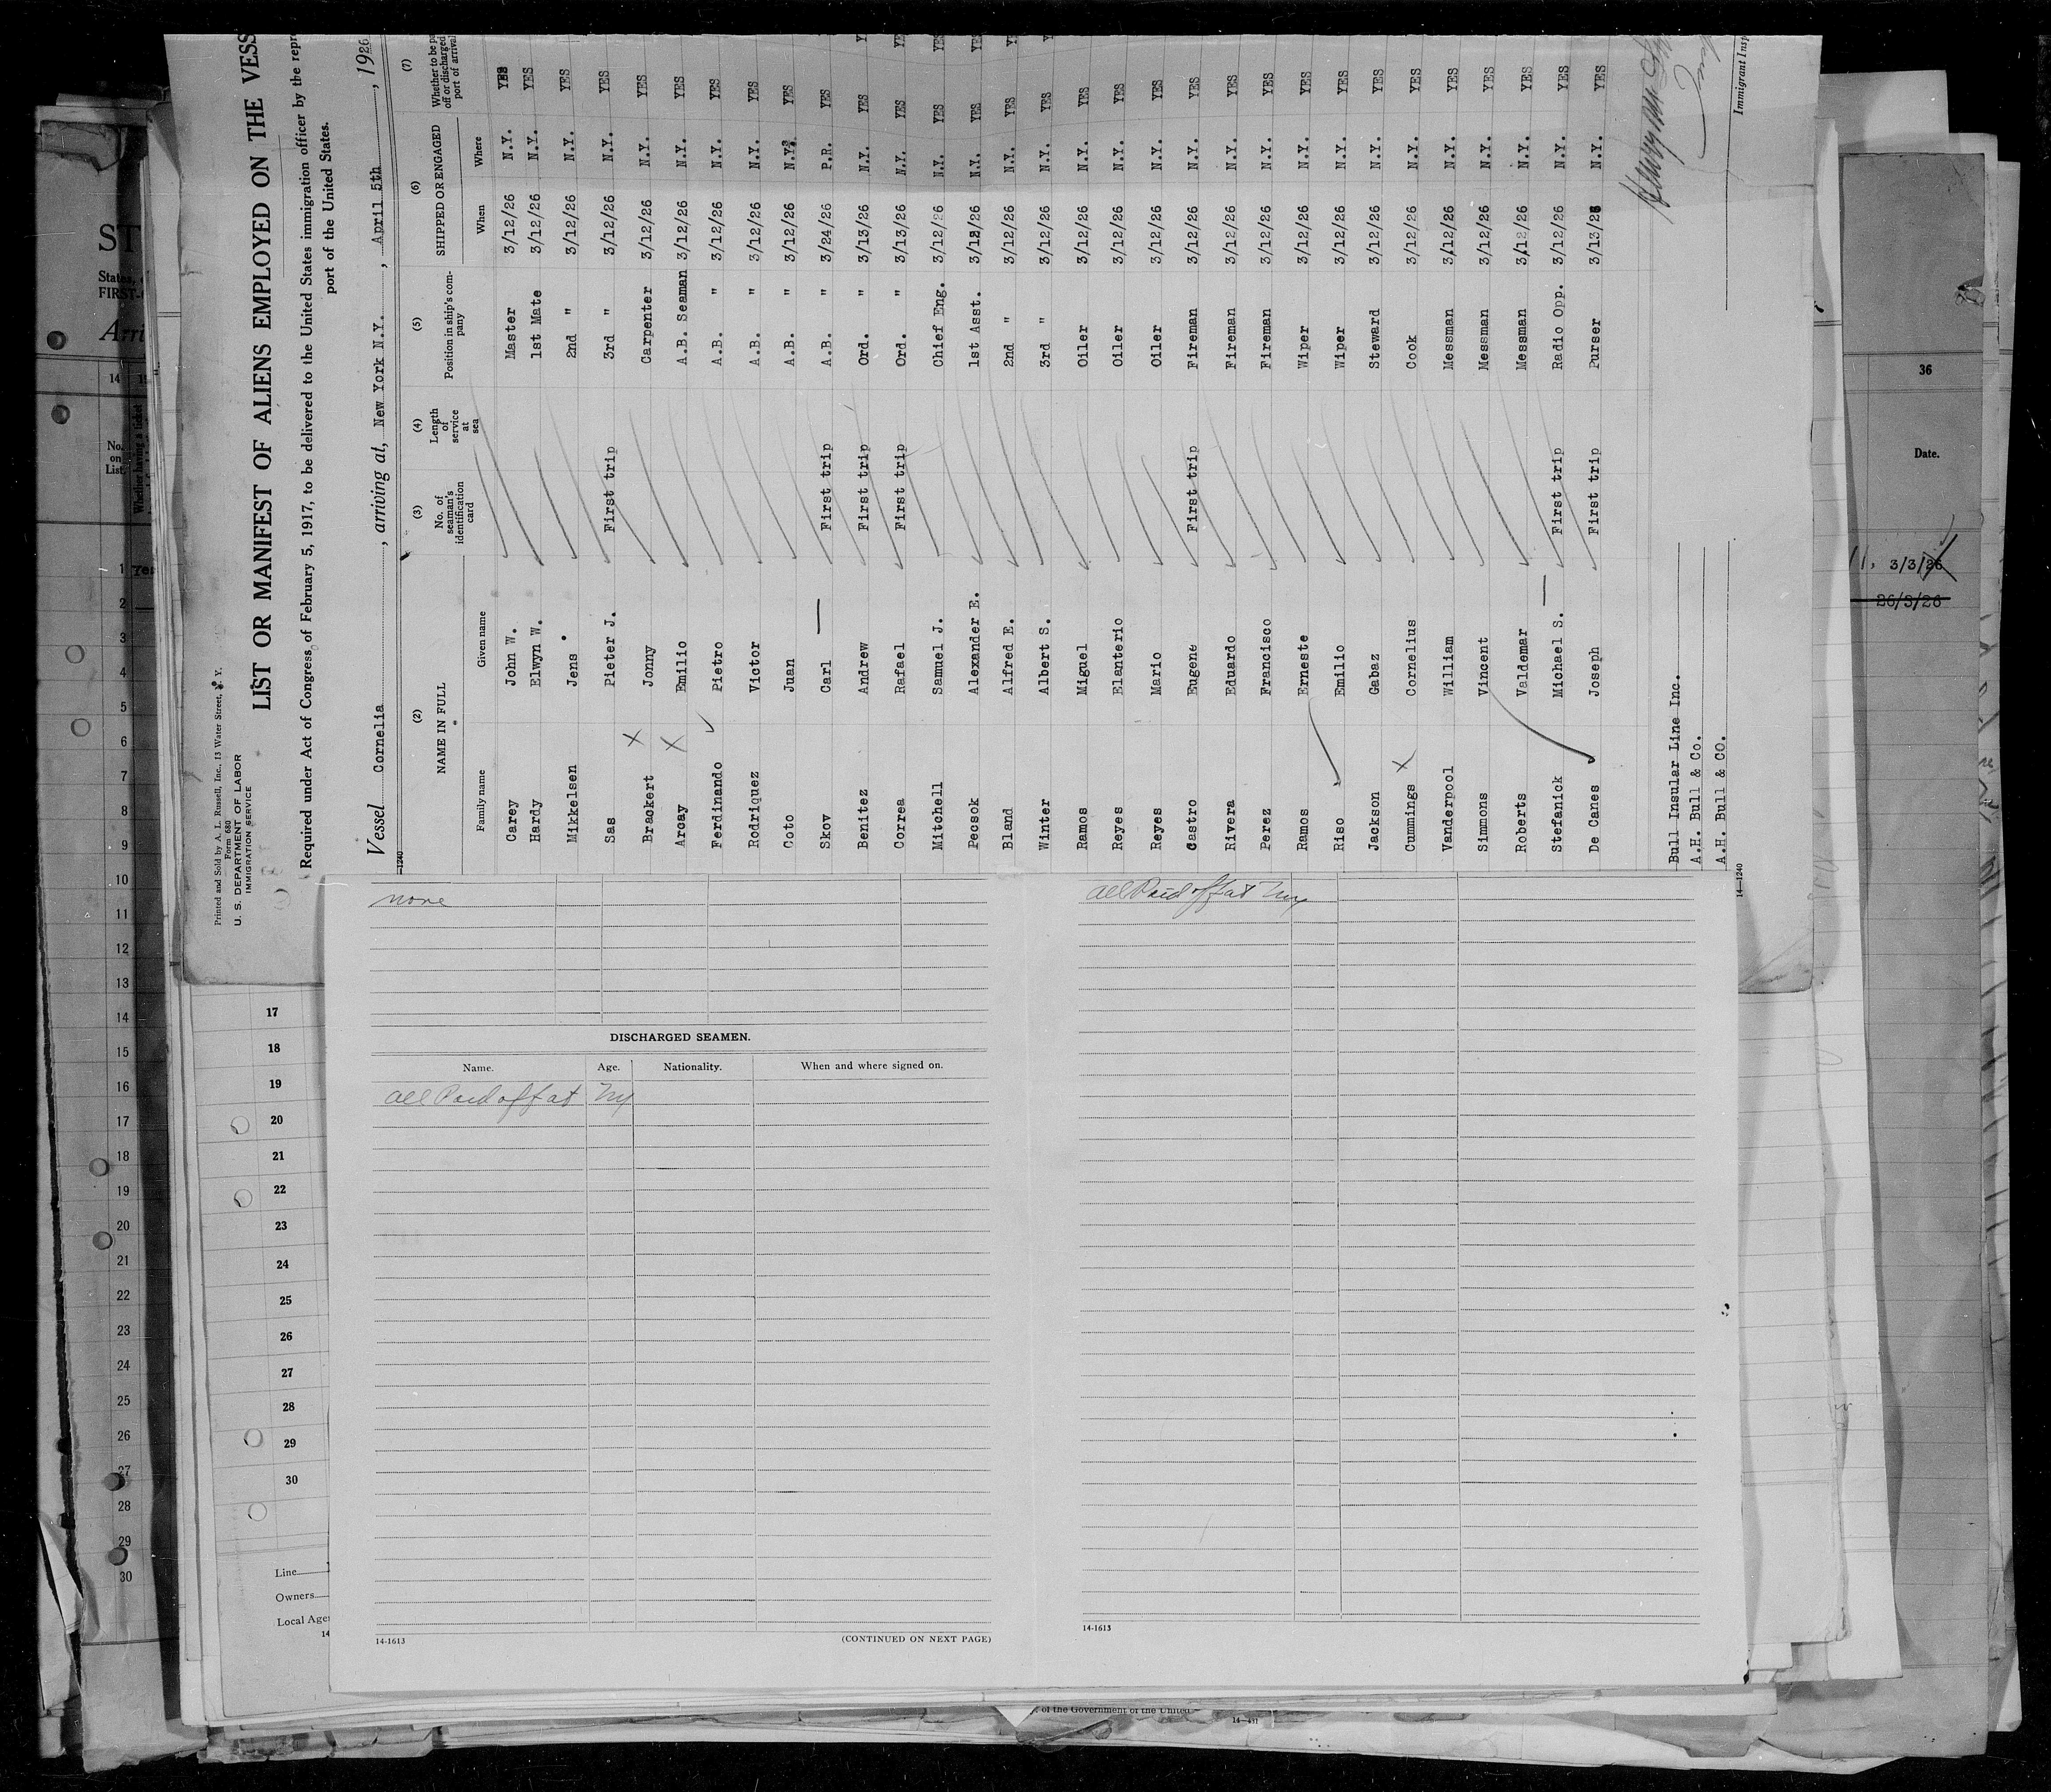 Printed and Sold by A. L. Russell, Inc., 13 Water Street, N. Y.
Form 680
U. S. DEPARTMENT OF LABOR
IMMIGRATION SERVICE
LIST OR MANIFEST OF ALIENS EMPLOYED ON THE VESS
Required under Act of Congress of February 5, 1917, to be delivered to the United States immigration officer by the repr
port of the United States.
Vessel Cornelia, arriving at, New York N.Y., April 5th, 1926
(2) (3) (4) (5) (6) (7)
NAME IN FULL No. of seaman's identification card Length of service at sea Position in ship's company SHIPPED OR ENGAGED Whether to be pa off or discharged port of arrival
Family name Given name When Where
Carey John W. Master 3/12/26 N.Y. YES
Hardy Elwyn W. 1st Mate 3/12/26 N.Y. YES
Mikkelsen Jens 2nd " 3/12/26 N.Y. YES
Sas Pieter J. First trip 3rd " 3/12/26 N.Y. YES
Brackert Jonny Carpenter 3/12/26 N.Y. YES
Arcay Emilio A.B. Seaman 3/12/26 N.Y. YES
Ferdinando Pietro A.B. " 3/12/26 N.Y. YES
Rodriquez Victor A.B. " 3/12/26 N.Y. YES
Coto Juan A.B. " 3/12/26 N.Y. YES
Skov Carl — First trip A.B. " 3/24/26 P.R. YES
Benitez Andrew First trip Ord. " 3/13/26 N.Y. YES
Correa Rafael First trip Ord. " 3/13/26 N.Y. YES
Mitchell Samuel J. Chief Eng. 3/12/26 N.Y. YES
Pecsok Alexander E. 1st Asst. 3/12/26 N.Y. YES
Bland Alfred E. 2nd " 3/12/26 N.Y. YES
Winter Albert S. 3rd " 3/12/26 N.Y. YES
Ramos Miguel Oiler 3/12/26 N.Y. YES
Reyes Elanterio Oiler 3/12/26 N.Y. YES
Reyes Mario Oiler 3/12/26 N.Y. YES
Castro Eugene First trip Fireman 3/12/26 N.Y. YES
Rivera Eduardo Fireman 3/12/26 N.Y. YES
Perez Francisco Fireman 3/12/26 N.Y. YES
Ramos Erneste Wiper 3/12/26 N.Y. YES
Riso Emilio Wiper 3/12/26 N.Y. YES
Jackson Gabaz Steward 3/12/26 N.Y. YES
Cummings Cornelius Cook 3/12/26 N.Y. YES
Vanderpool William Messman 3/12/26 N.Y. YES
Simmons Vincent Messman 3/12/26 N.Y. YES
Roberts Valdemar Messman 3/12/26 N.Y. YES
Stefanick Michael S. — First trip Radio Opp. 3/12/26 N.Y. YES
De Canes Joseph First trip Purser 3/13/26 N.Y. YES
Bull Insular Line Inc.
A.H. Bull & Co.
A.H. Bull & CO.
14—1240
Immigrant Insp
none
DISCHARGED SEAMEN.
Name. Age. Nationality. When and where signed on.
all Paid off at Ny
14-1613
(CONTINUED ON NEXT PAGE)
all Paid off at Ny
14-1613
ST
States,
FIRST-
Arri
14
No. on List.
Whether having a ticket
1 Yes
2
3
4
5
6
7
8
9
10
11
12
13
14
15
16
17
18
19
20
21
22
23
24
25
26
27
28
29
30
17
18
19
20
21
22
23
24
25
26
27
28
29
30
Line
Owners
Local Age
14
36
Date.
3/3/26
26/3/26
of the Government of the United
14—431